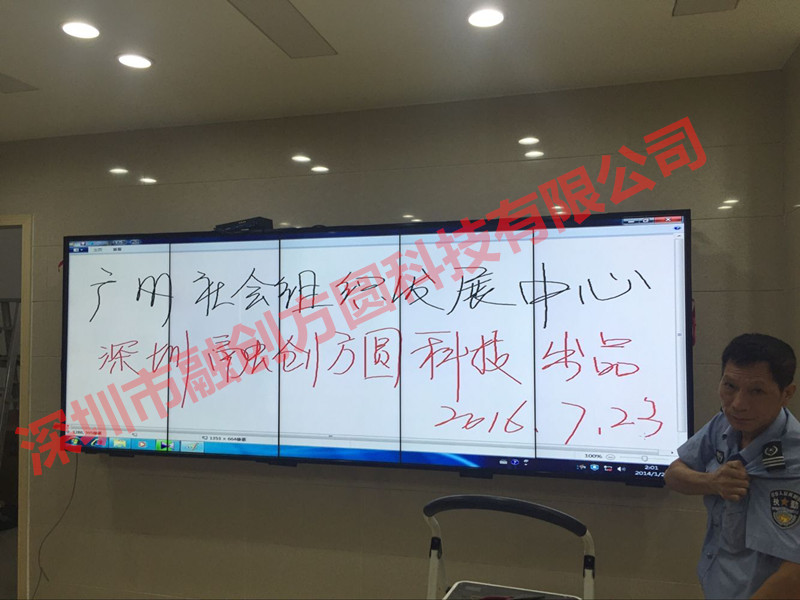 深圳市融创方圆科技有限公司
广州社会组织发展中心
深圳融创方圆科技出品
2016.7.23
100%
2:01